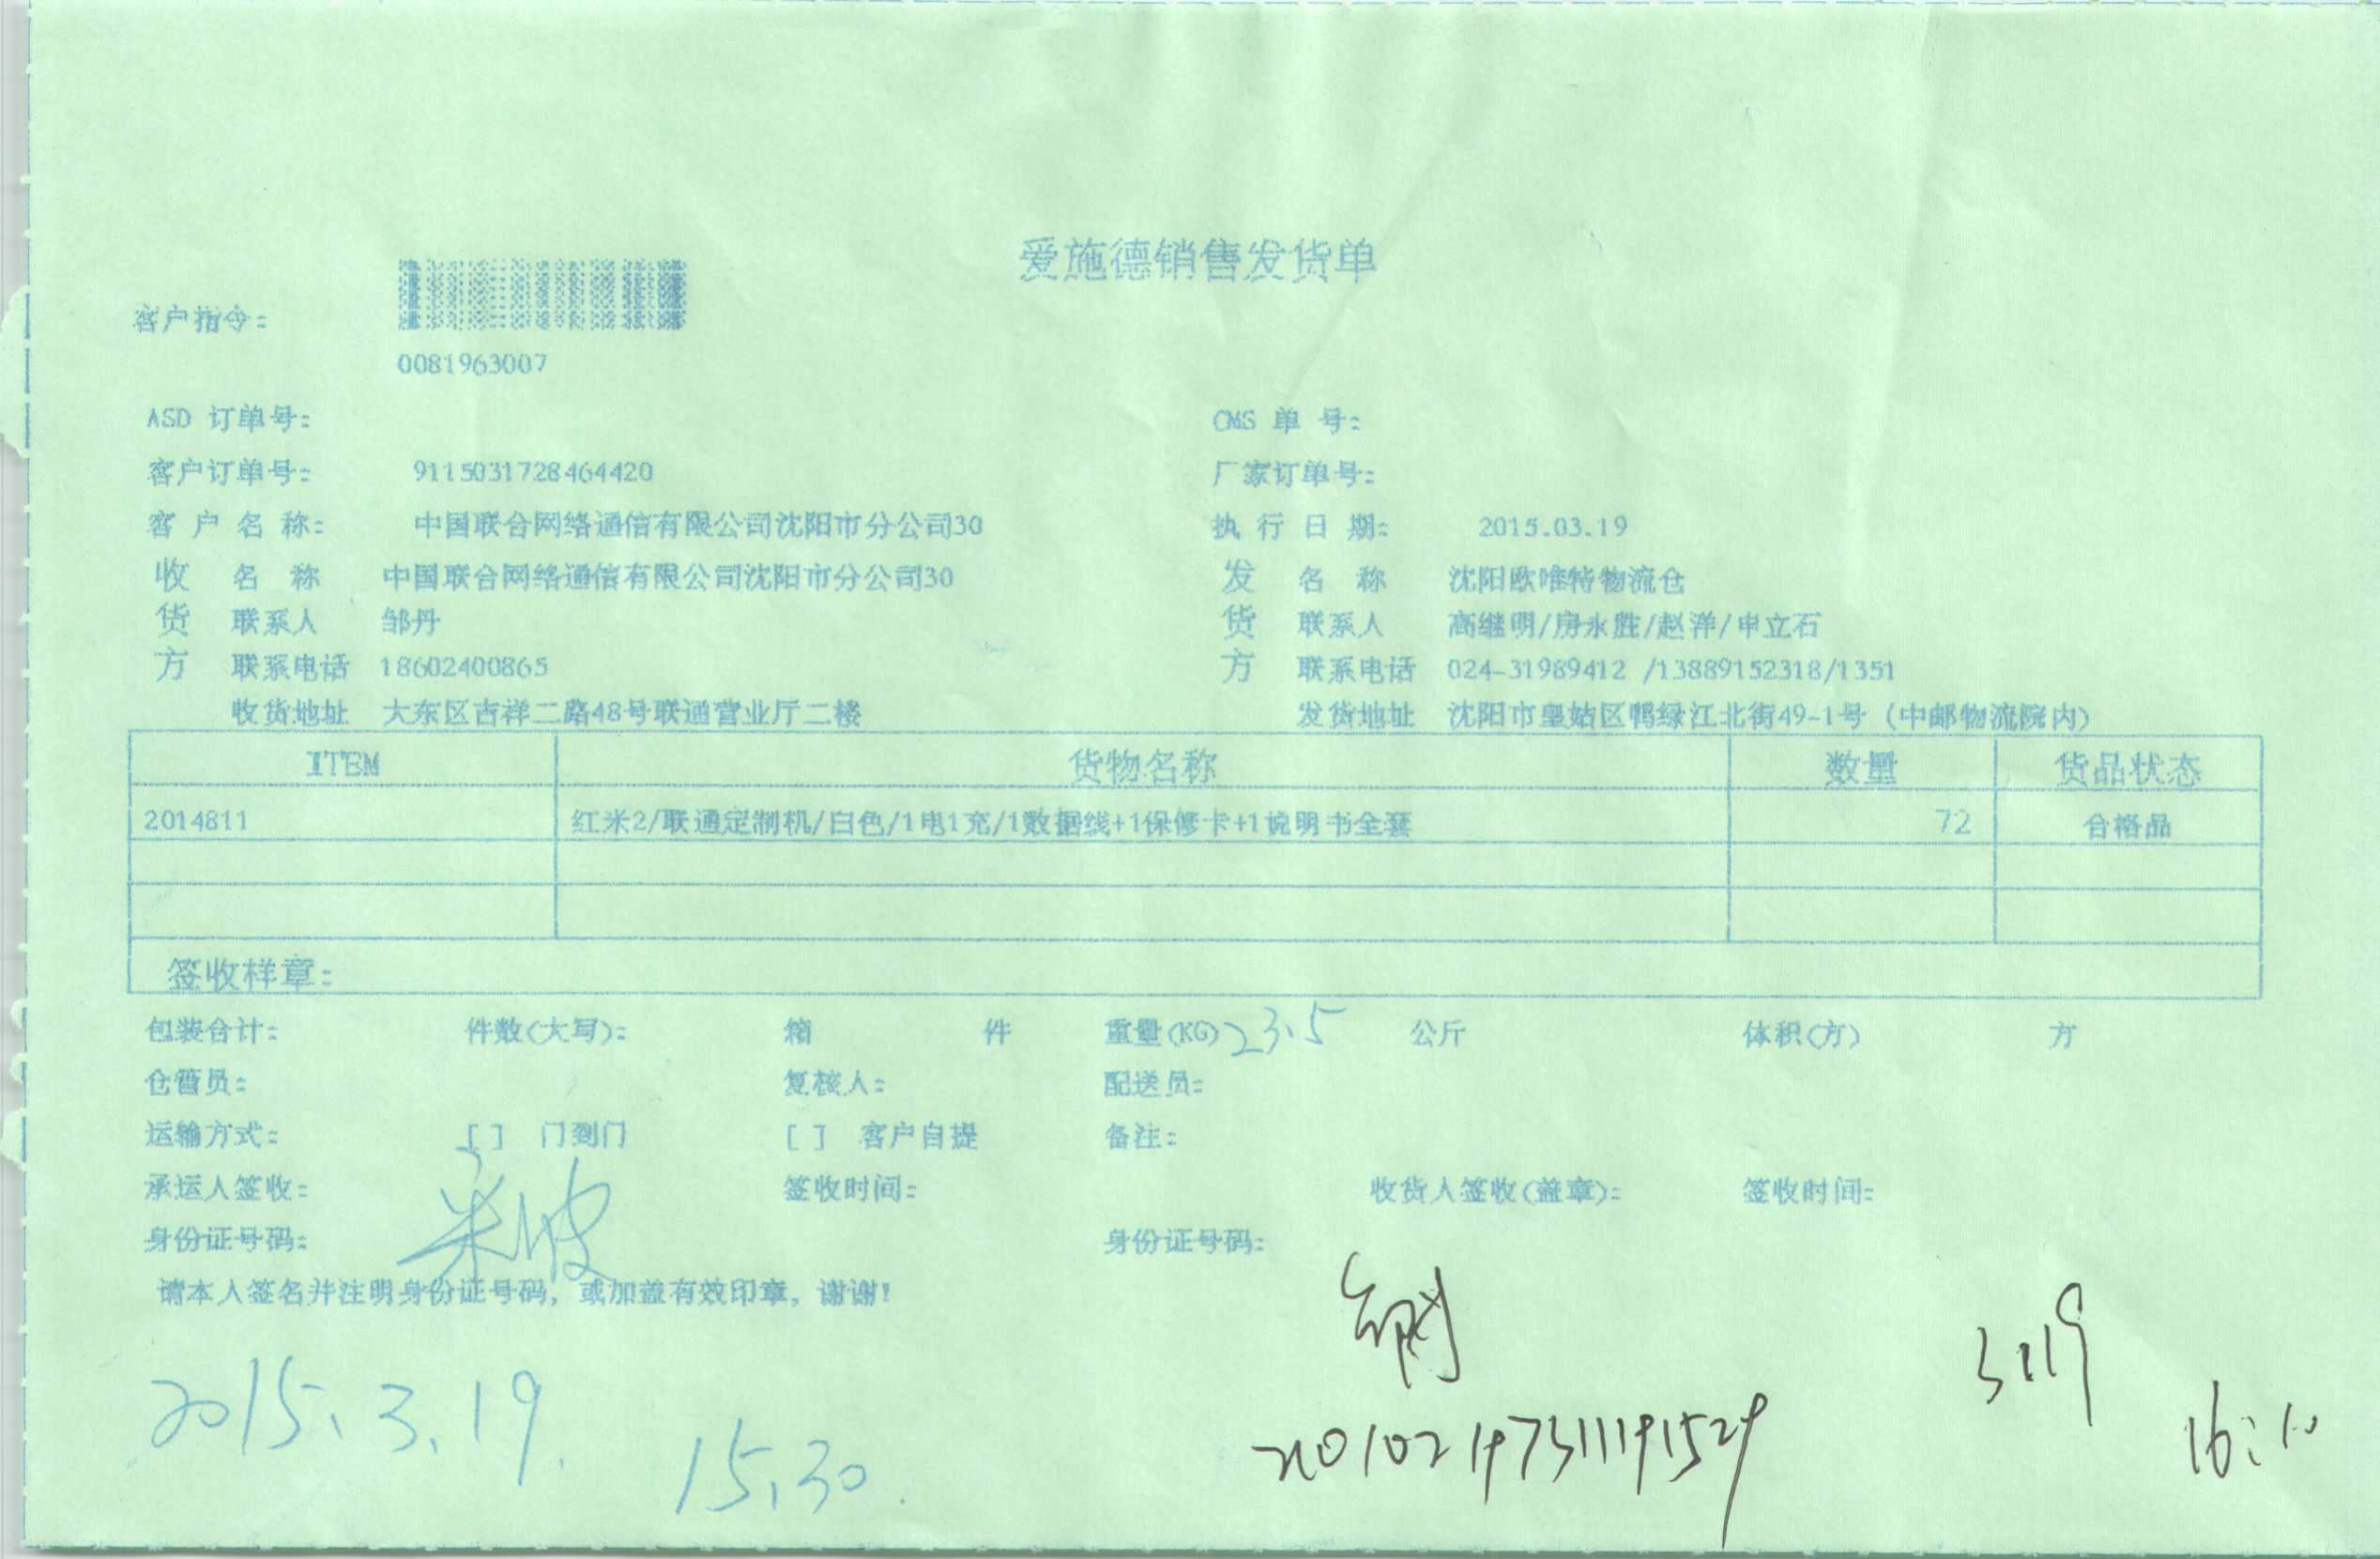 爱施德销售发货单
客户指令:
0081963007
ASD 订单号: CMS 单 号:
客户订单号: 9115031728464420 厂家订单号:
客 户 名 称: 中国联合网络通信有限公司沈阳市分公司30 执 行 日 期: 2015.03.19
收 名 称 中国联合网络通信有限公司沈阳市分公司30 发 名 称 沈阳欧唯特物流仓
货 联系人 邹丹 货 联系人 高继明/房永胜/赵洋/申立石
方 联系电话 18602400865 方 联系电话 024-31989412 /13889152318/1351
收货地址 大东区吉祥二路48号联通营业厅二楼 发货地址 沈阳市皇姑区鸭绿江北街49-1号 (中邮物流院内)
ITEM 货物名称 数量 货品状态
2014811 红米2/联通定制机/白色/1电1充/1数据线+1保修卡+1说明书全套 72 合格品
签收样章:
包装合计: 件数(大写): 箱 件 重量(KG) 23.5 公斤 体积(方) 方
仓管员: 复核人: 配送员:
运输方式: [ ] 门到门 [ ] 客户自提 备注:
承运人签收: 签收时间: 收货人签收(盖章): 签收时间:
身份证号码: 身份证号码:
请本人签名并注明身份证号码, 或加盖有效印章, 谢谢!
3.19
2015.3.19. 15.30. 210102197311191529 16:10